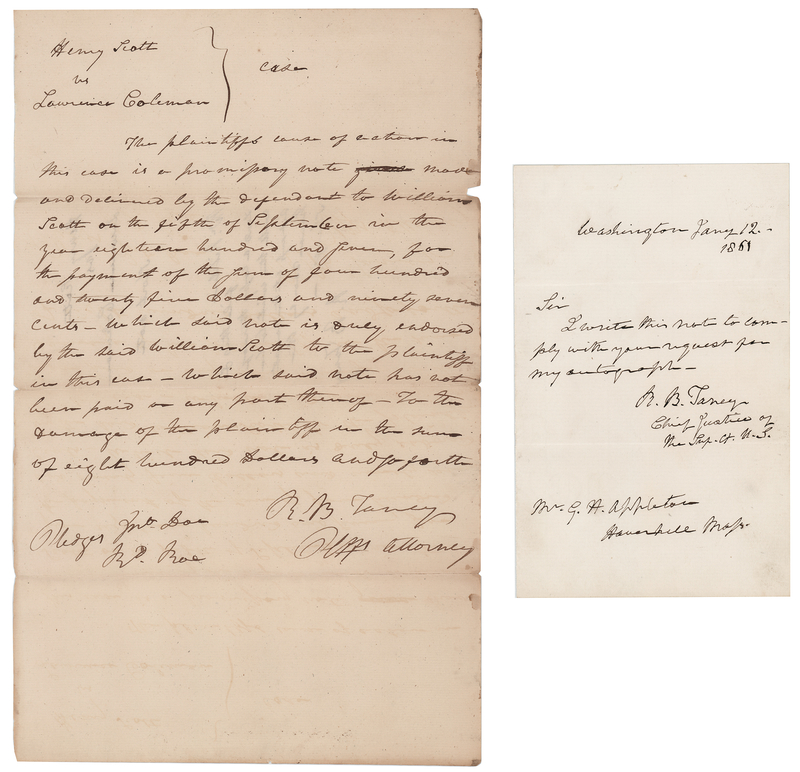 Henry Scott
vs
Lawrence Coleman
case
The plaintiffs cause of action in
this case is a promissory note made
and delivered by the defendant to William
Scott on the fifth of September in the
year eighteen hundred and seven, for
the payment of the sum of four hundred
and twenty five Dollars and ninety seven
cents – which said note is duly endorsed
by the said William Scott to the plaintiff
in this case – which said note has not
been paid or any part thereof – To the
Damage of the plaintiff in the sum
of eight hundred Dollars and so forth
R. B. Taney
Plffs attorney
Pledges Jno. Doe
Rd. Roe
Washington Jany 12. –
1861
Sir
I write this note to com–
ply with your request for
my autograph –
R. B. Taney
Chief Justice of
the Sup. Ct. U. S.
Mr. G. H. Appleton
Haverhill Mass.